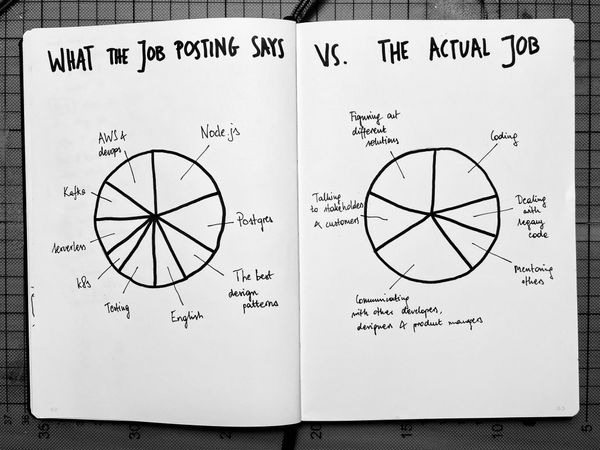 WHAT THE JOB POSTING SAYS
VS. THE ACTUAL JOB
AWS &
devops
Node.js
Kafka
Postgres
serverless
k8s
Testing
English
The best
design
patterns
Figuring out
different
solutions
Coding
Talking
to stakeholders
& customers
Dealing
with
legacy
code
Mentoring
others
Communicating
with other developers,
designers & product managers
35
30
25
20
15
10
5